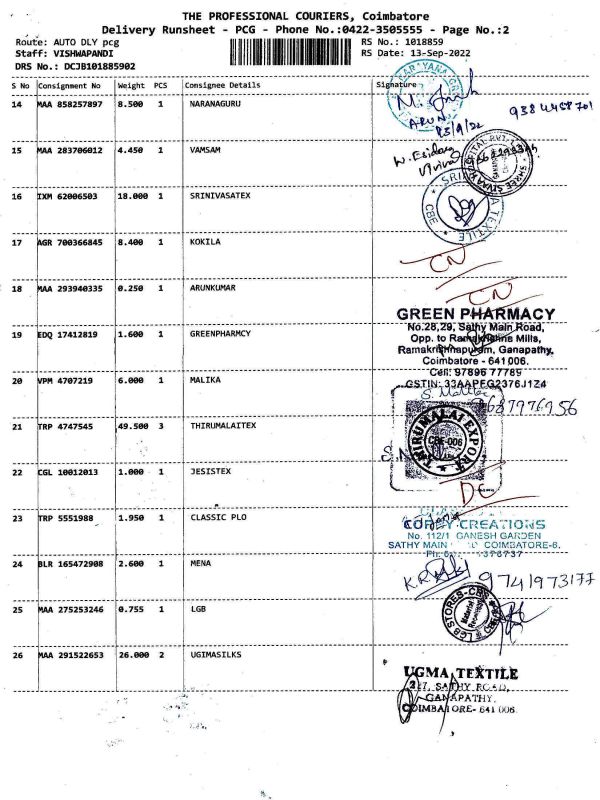 THE PROFESSIONAL COURIERS, Coimbatore
Delivery Runsheet - PCG - Phone No.:0422-3505555 - Page No.:2
Route: AUTO DLY pcg RS No.: 1018859
Staff: VISHWAPANDI RS Date: 13-Sep-2022
DRS No.: DCJB101885902
S No Consignment No Weight PCS Consignee Details Signature
14 MAA 858257897 8.500 1 NARANAGURU
ARUN
13/9/22
15 MAA 283706012 4.450 1 VAMSAM
16 IXM 62006503 18.000 1 SRINIVASATEX
CBE
TEXTILE
17 AGR 700366845 8.400 1 KOKILA
CN
18 MAA 293940335 0.250 1 ARUNKUMAR
CN
GREEN PHARMACY
19 EDQ 17412819 1.600 1 GREENPHARMCY
No.28,29, Sathy Main Road,
Opp. to Ramakrishna Mills,
Ramakrishnapuram, Ganapathy,
Coimbatore - 641 006.
Cell: 97896 77789
20 VPM 4707219 6.000 1 MALIKA
GSTIN: 33AAPFG2376J1Z4
21 TRP 4747545 49.500 3 THIRUMALAITEX
THIRUMALAI EXPORT
CBE-006
22 CGL 10012013 1.000 1 JESISTEX
23 TRP 5551988 1.950 1 CLASSIC PLO
CREATIONS
No. 112/1 GANESH GARDEN
SATHY MAIN COIMBATORE-6.
24 BLR 165472908 2.600 1 MENA
9741973177
25 MAA 275253246 0.755 1 LGB
LGB STORES-CBE
26 MAA 291522653 26.000 2 UGIMASILKS
UGMA TEXTILE
227, SATHY ROAD,
GANAPATHY,
COIMBATORE- 641 006